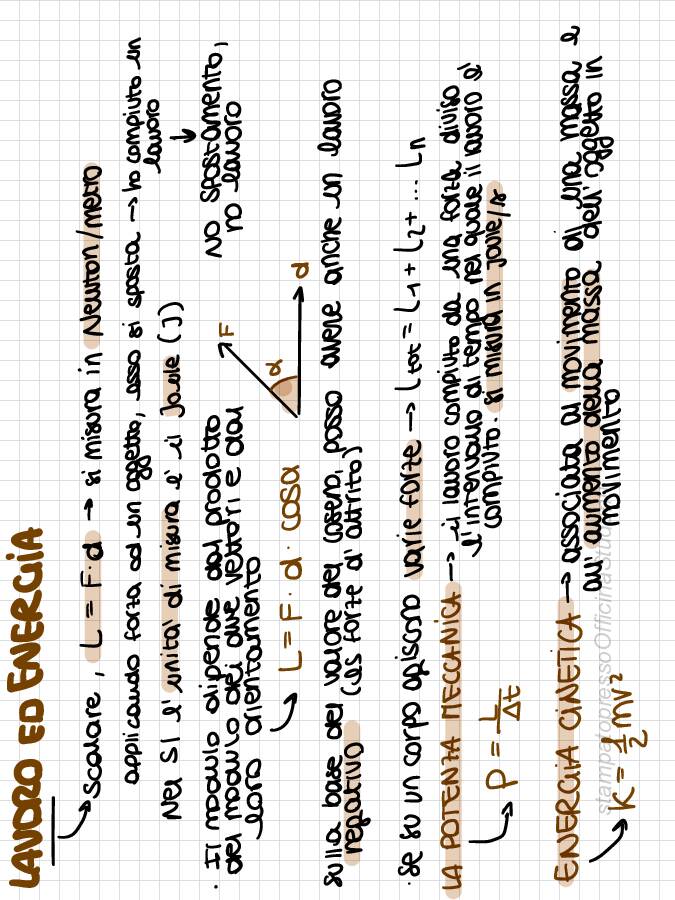 LAVORO ED ENERGIA
→ scalare, L = F · d → si misura in Newton/metro
applicando forza ad un oggetto, esso si sposta → ho compiuto un
lavoro
↓
NO SPOSTAMENTO,
no lavoro
Nel SI l'unita' di misura e' il Joule (J)
· Il modulo dipende dal prodotto
del modulo dei due vettori e dal
loro orientamento
→ L = F · d · cosα
F
α
d
sulla base del valore del coseno, posso avere anche un lavoro
negativo (es forze d'attrito)
· se su un corpo agiscono varie forze → Ltot = L1 + L2 + ... Ln
LA POTENZA MECCANICA → il lavoro compiuto da una forza diviso
l'intervallo di tempo nel quale il lavoro e'
compiuto. si misura in Joule/s
→ P = L/Δt
ENERGIA CINETICA → associata al movimento di una massa e
all'aumento della massa dell'oggetto in
movimento
→ K = 1/2 mv²
stampatopressoOfficinaStu